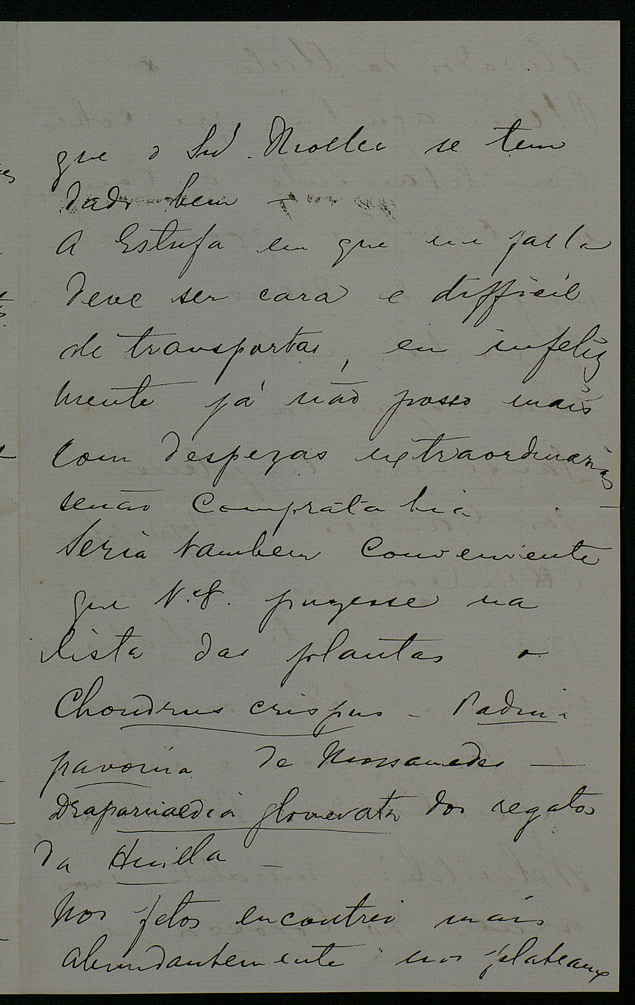 que o Snr. Moller se tem
dado bem —
A Estufa em que me falla
deve ser cara e difficil
de transportar, eu infeliz
mente já não posso mais
com despezas extraordinarias
senão compral-a hia.
Seria tambem conveniente
que V.S. puzesse na
lista das plantas o
Chondrus crispus – Padina
pavonia de Mossamedes —
Draparnaldia glomerata dos regatos
da Huilla —
Nos fetos encontrei mais
abundantemente nos plateaux